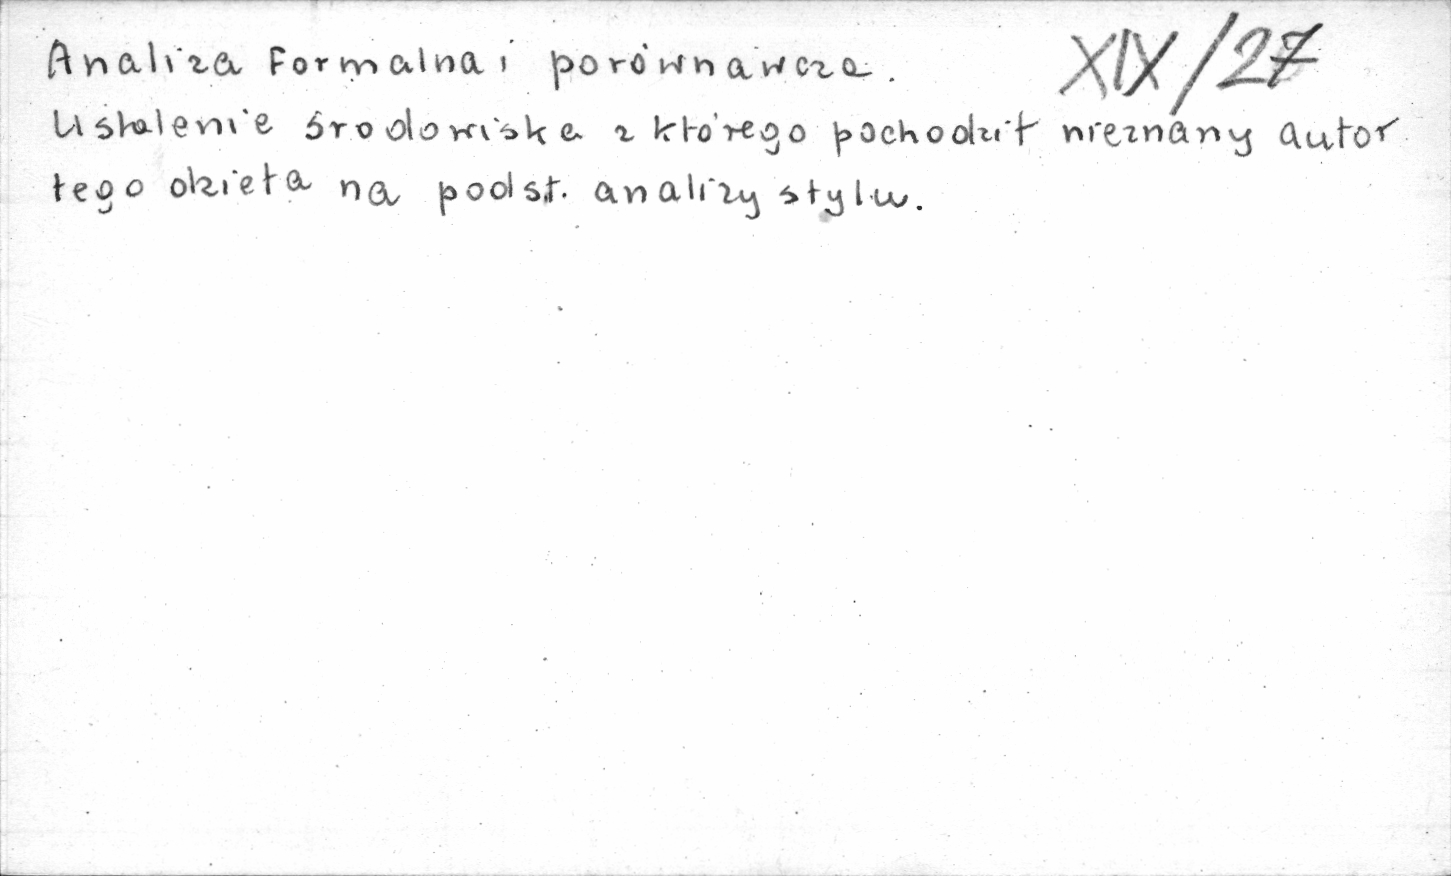 Analiza formalna i porównawcza. XIX/27
Ustalenie środowiska z którego pochodził nieznany autor
tego dzieła na podst. analizy stylu.